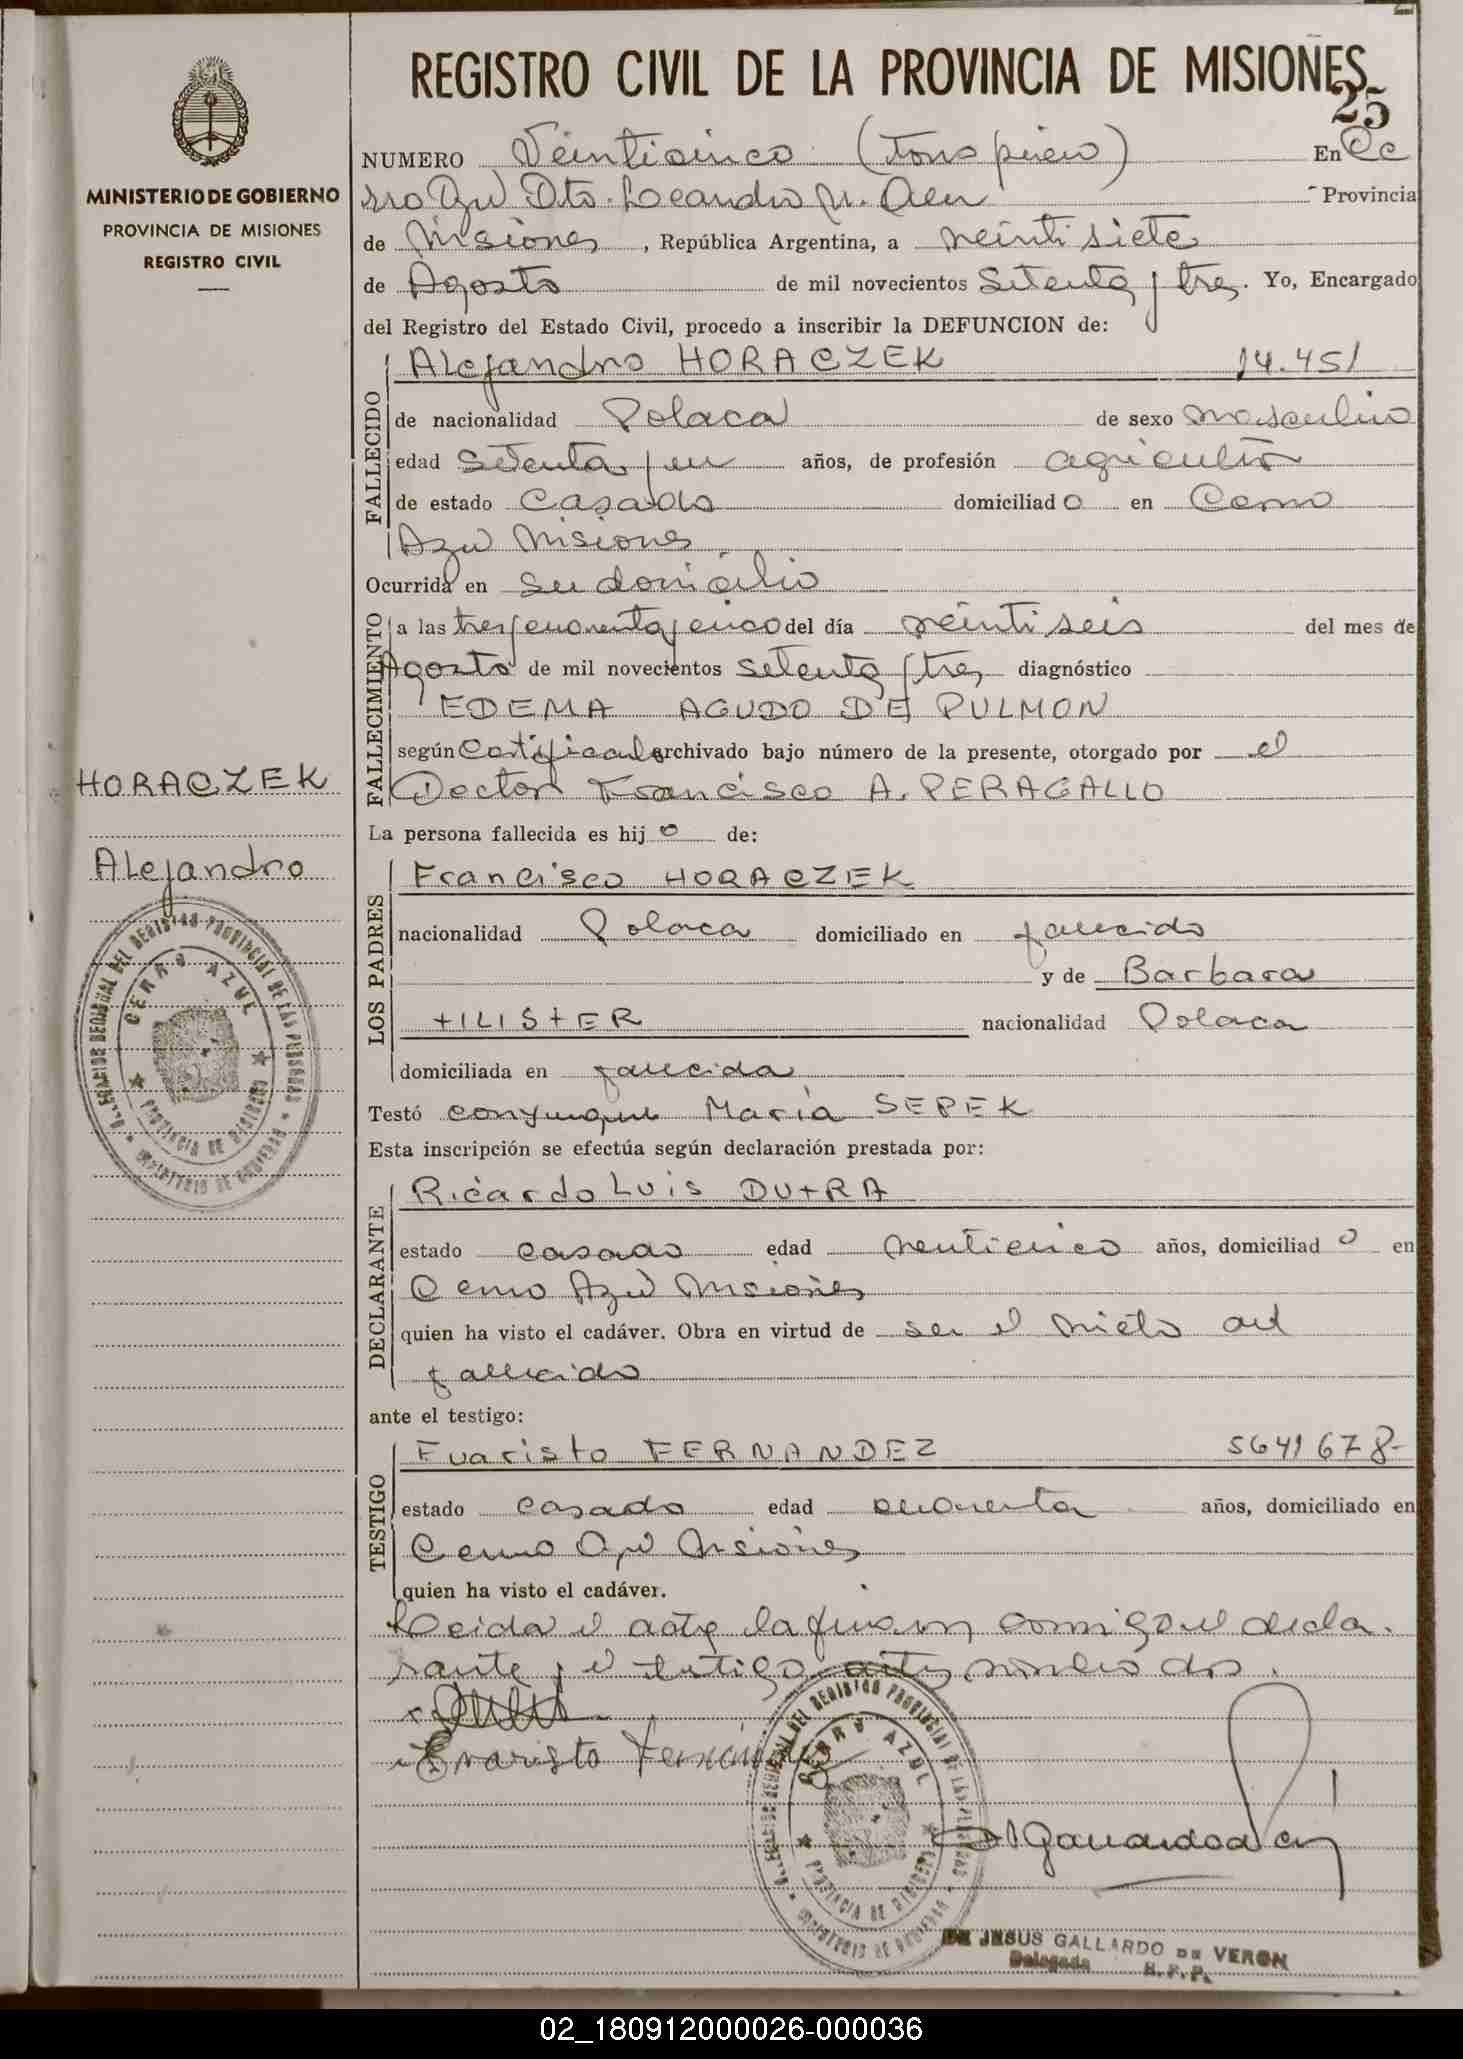 REGISTRO CIVIL DE LA PROVINCIA DE MISIONES
25
MINISTERIO DE GOBIERNO
PROVINCIA DE MISIONES
REGISTRO CIVIL
NUMERO Veinticinco (Tomo primero) En Ce
rro Azul Dto. Leandro N. Alem Provincia
de Misiones, República Argentina, a veintisiete
de Agosto de mil novecientos setenta y tres. Yo, Encargado
del Registro del Estado Civil, procedo a inscribir la DEFUNCION de:
FALLECIDO
Alejandro HORACZEK 14.451
de nacionalidad Polaca de sexo masculino
edad setenta y un años, de profesión agricultor
de estado Casado domiciliado en Cerro
Azul Misiones
Ocurrida en su domicilio
FALLECIMIENTO
a las tres y cuarenta y cinco del día veintiseis del mes de
Agosto de mil novecientos setenta y tres diagnóstico
EDEMA AGUDO DE PULMON
según Certificado archivado bajo número de la presente, otorgado por el
Doctor Francisco A. PERAGALLO
HORACZEK
Alejandro
La persona fallecida es hijo de:
LOS PADRES
Francisco HORACZEK
nacionalidad Polaca domiciliado en fallecido
y de Barbara
TILISTER nacionalidad Polaca
domiciliada en fallecida
Testó conyugue María SEPEK
Esta inscripción se efectúa según declaración prestada por:
DECLARANTE
Ricardo Luis DUTRA
estado casado edad veinticinco años, domiciliado en
Cerro Azul Misiones
quien ha visto el cadáver. Obra en virtud de ser el nieto del
fallecido
ante el testigo:
TESTIGO
Evaristo FERNANDEZ 5641678-
estado casado edad cuarenta años, domiciliado en
Cerro Azul Misiones
quien ha visto el cadáver.
Leida el acta la firman conmigo el decla
rante y el testigo
Evaristo Fernández
CERRO AZUL
PROVINCIA DE MISIONES
CERRO AZUL
PROVINCIA DE MISIONES
DE JESUS GALLARDO DE VERON
Delegada R.P.P.
02_180912000026-000036